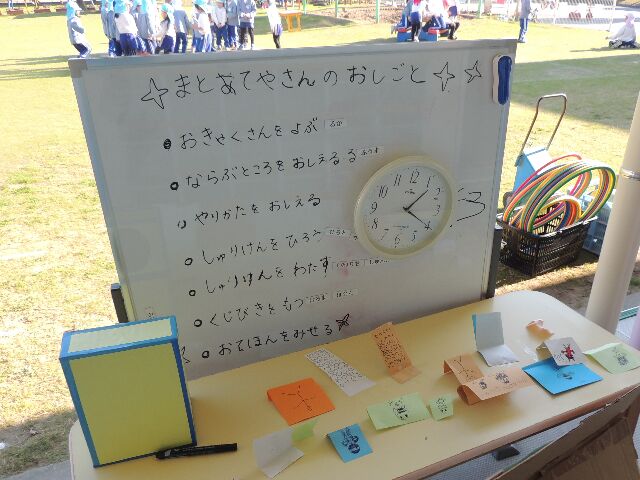 ☆まとあてやさんのおしごと☆☆
おきゃくさんをよぶ
ならぶところをおしえるる
やりかたをおしえる
しゅりけんをひろう
しゅりけんをわたす
くじびきをもつ
おてほんをみせる
12
1
2
3
4
5
6
7
8
9
10
11